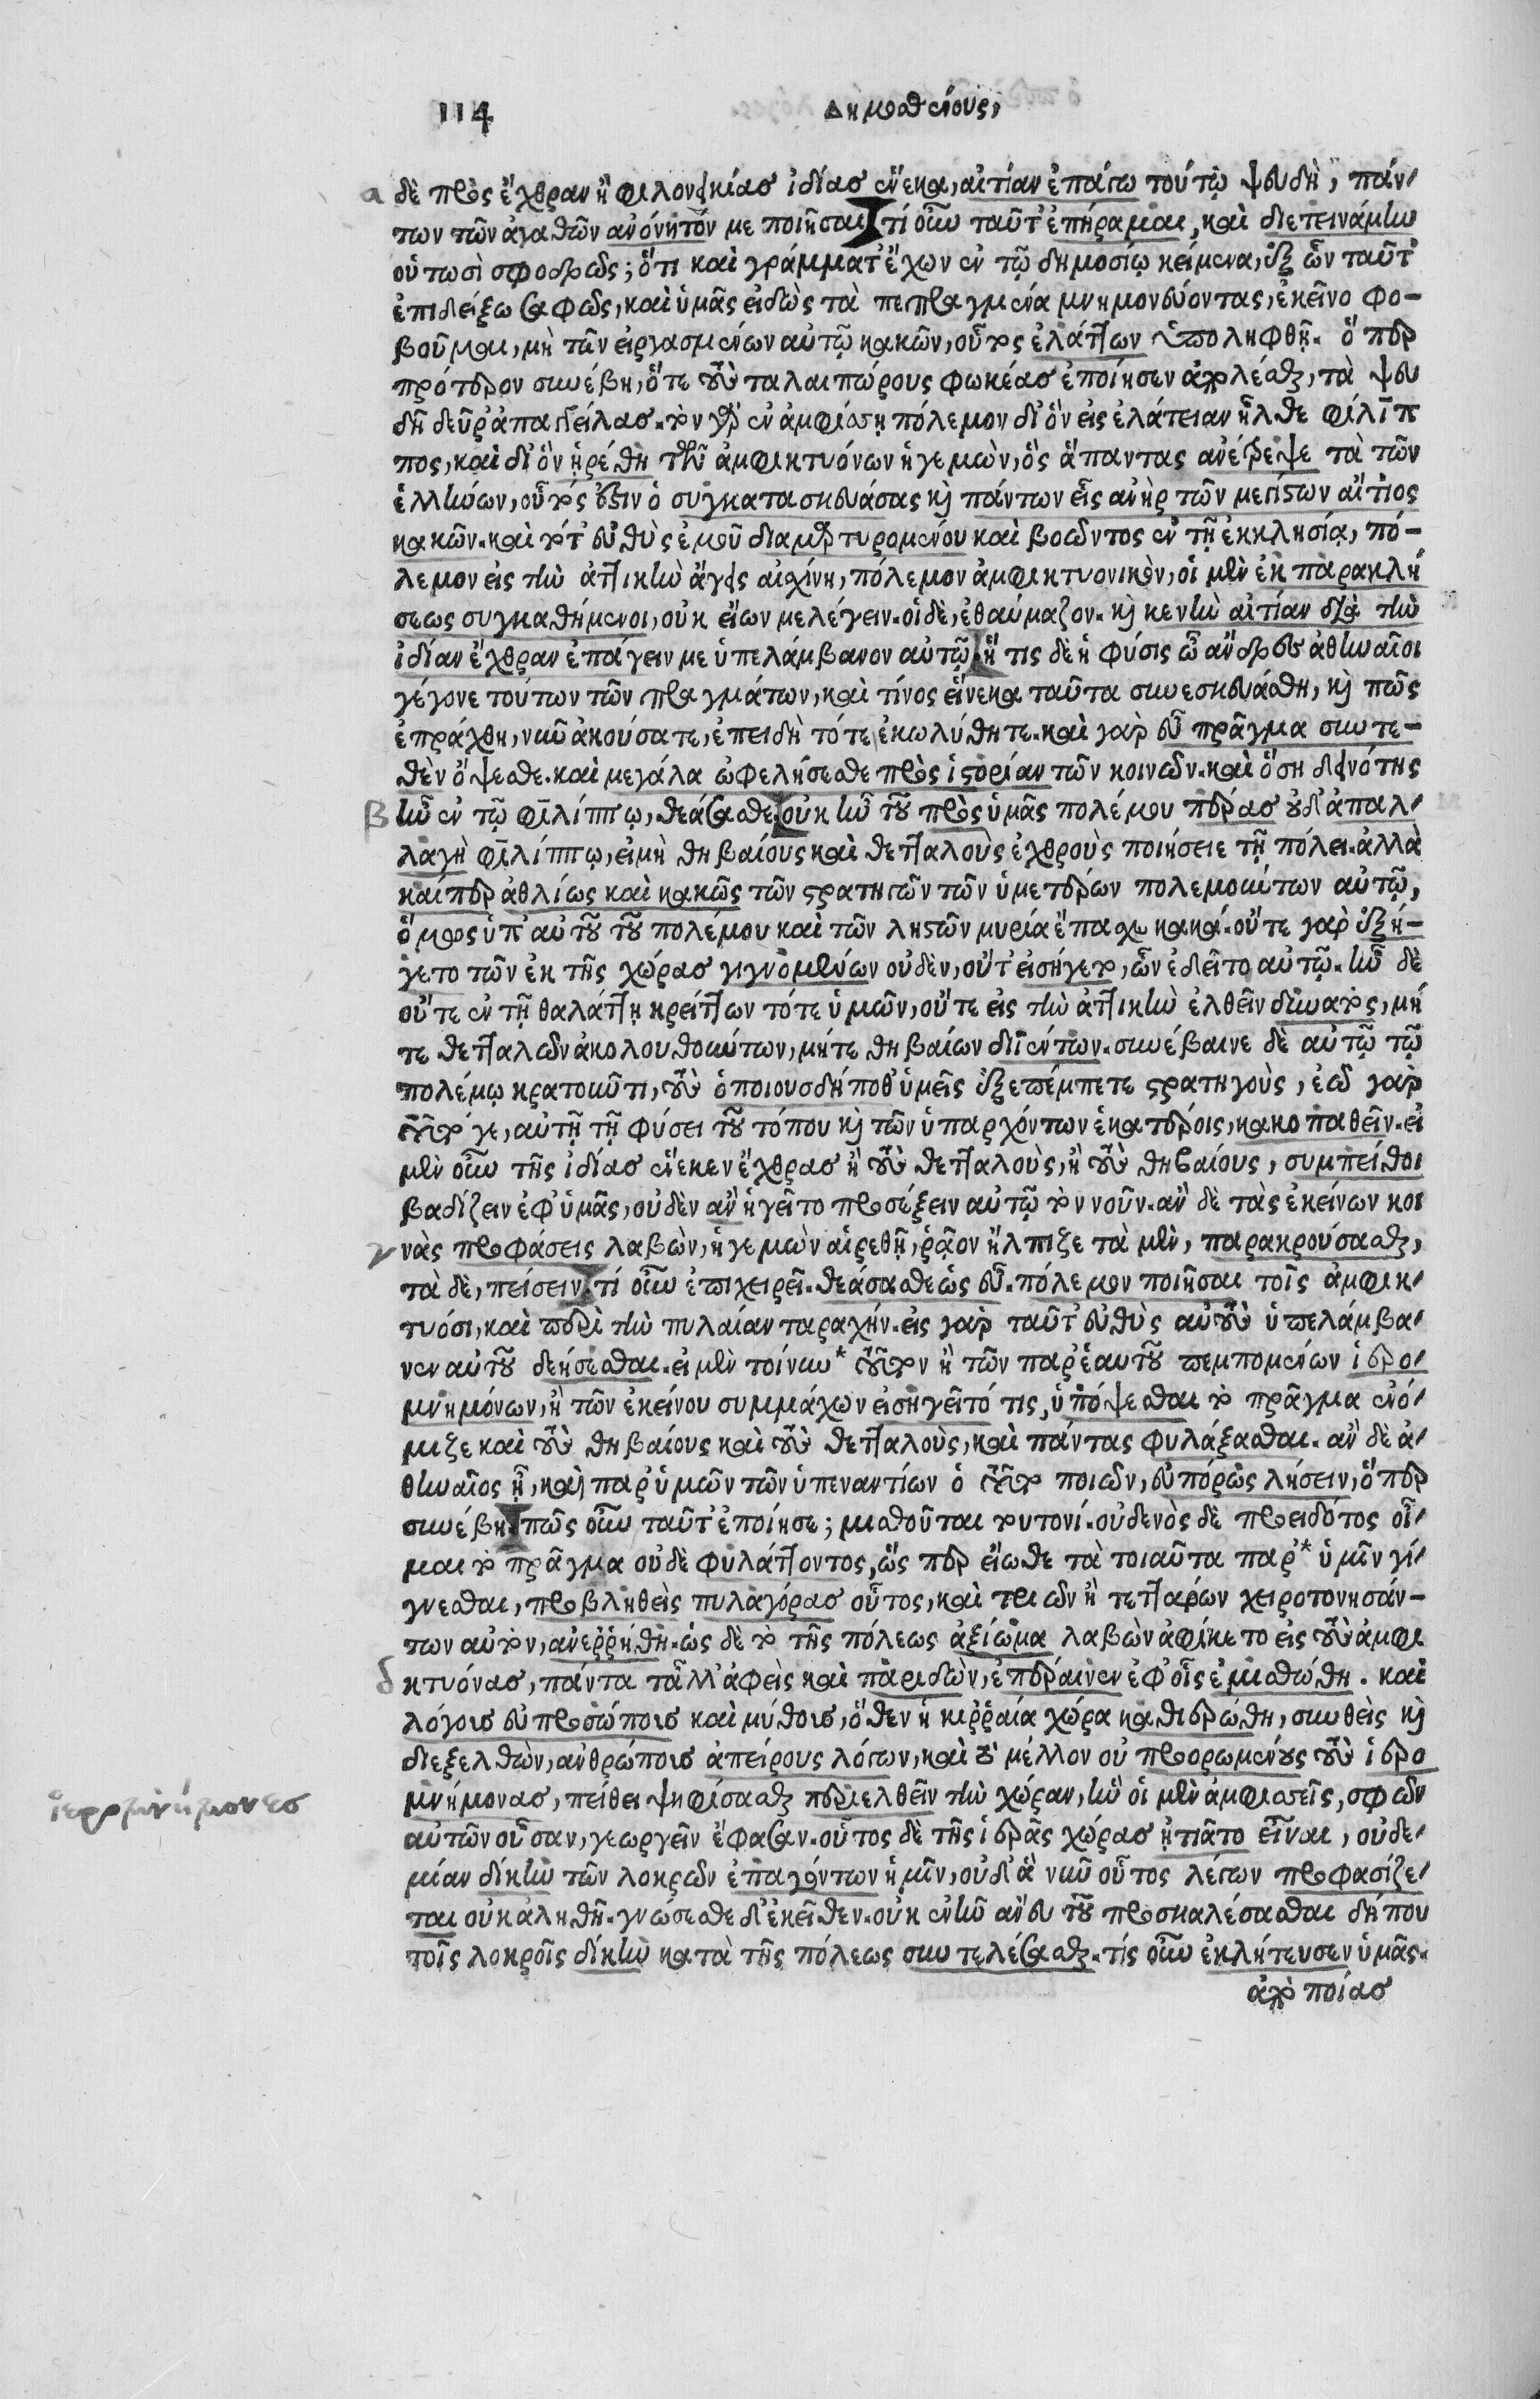 114 Δημοσθένους,
α δὲ πρὸς ἔχθραν ἢ φιλονεικίας ἰδίας ἕνεκα, αἰτίαν ἐπάγω τούτῳ ψευδῆ, πάν-
των τῶν ἀγαθῶν ἀνόνητόν με ποιῆσαι τί οὖν ταῦτ' ἐπήραμαι, καὶ διετεινάμην
οὑτωσὶ σφοδρῶς; ὅτι καὶ γράμματ' ἔχων ἐν τῷ δημοσίῳ κείμενα, ἐξ ὧν ταῦτ'
ἐπιδείξω σαφῶς, καὶ ὑμᾶς εἰδὼς τὰ πεπραγμένα μνημονεύοντας, ἐκεῖνο φο-
βοῦμαι, μὴ τῶν εἰργασμένων αὐτῷ κακῶν, οὗτος ἐλάττων ὑποληφθῇ. ὅπερ
πρότερον συνέβη, ὅτε τοὺς ταλαιπώρους φωκέας ἐποίησεν ἀπολέσθαι, τὰ ψευ
δῆ δεῦρ' ἀπαγγείλας. τὸν γὰρ ἐν ἀμφίσσῃ πόλεμον δι' ὃν εἰς ἐλάτειαν ἦλθε φίλιπ
πος, καὶ δι' ὃν ᾑρέθη τῶν ἀμφικτυόνων ἡγεμὼν, ὃς ἅπαντας ἀνέτρεψε τὰ τῶν
ἑλλήνων, οὗτός ἐστιν ὁ συγκατασκευάσας καὶ πάντων εἷς ἀνὴρ τῶν μεγίστων αἴτιος
κακῶν. καὶ τότ' εὐθὺς ἐμοῦ διαμαρτυρομένου καὶ βοῶντος ἐν τῇ ἐκκλησίᾳ, πό-
λεμον εἰς τὴν ἀττικὴν ἄγεις αἰσχίνη, πόλεμον ἀμφικτυονικὸν, οἱ μὲν ἐκ παρακλή
σεως συγκαθήμενοι, οὐκ εἴων με λέγειν. οἱ δὲ, ἐθαύμαζον. καὶ κενὴν αἰτίαν διὰ τὴν
ἰδίαν ἔχθραν ἐπάγειν με ὑπελάμβανον αὐτῷ ἥ τις δὲ ἡ φύσις ὦ ἄνδρες ἀθηναῖοι
γέγονε τούτων τῶν πραγμάτων, καὶ τίνος εἵνεκα ταῦτα συνεσκευάσθη, καὶ πῶς
ἐπράχθη, νῦν ἀκούσατε, ἐπειδὴ τότε ἐκωλύθητε. καὶ γὰρ εὖ πρᾶγμα συντε-
θὲν ὄψεσθε. καὶ μεγάλα ὠφελήσεσθε πρὸς ἱστορίαν τῶν κοινῶν. καὶ ὅση δεινότης
β ἦν ἐν τῷ φιλίππῳ, θεάσασθε οὐκ ἦν τοῦ πρὸς ὑμᾶς πολέμου πέρας οὐδ' ἀπαλ-
λαγὴ φιλίππῳ, εἰ μὴ θηβαίους καὶ θετταλοὺς ἐχθροὺς ποιήσειε τῇ πόλει. ἀλλὰ
καίπερ ἀθλίως καὶ κακῶς τῶν στρατηγῶν τῶν ὑμετέρων πολεμούντων αὐτῷ,
ὅμως ὑπ' αὐτοῦ τοῦ πολέμου καὶ τῶν λῃστῶν μυρία ἔπασχε κακά. οὔτε γὰρ ἐξή-
γετο τῶν ἐκ τῆς χώρας γιγνομένων οὐδὲν, οὔτ' εἰσήγετο, ὧν ἐδεῖτο αὐτῷ. ἦν δὲ
οὔτε ἐν τῇ θαλάττῃ κρείττων τότε ὑμῶν, οὔτε εἰς τὴν ἀττικὴν ἐλθεῖν δυνατὸς, μή
τε θετταλῶν ἀκολουθούντων, μήτε θηβαίων διϊέντων. συνέβαινε δὲ αὐτῷ τῷ
πολέμῳ κρατοῦντι, τοὺς ὁποιουσδήποθ' ὑμεῖς ἐξεπέμπετε στρατηγοὺς, ἐῶ γὰρ
τοῦτό γε, αὐτῇ τῇ φύσει τοῦ τόπου καὶ τῶν ὑπαρχόντων ἑκατέροις, κακοπαθεῖν. εἰ
μὲν οὖν τῆς ἰδίας ἕνεκεν ἔχθρας ἢ τοὺς θετταλοὺς, ἢ τοὺς θηβαίους, συμπείθοι
βαδίζειν ἐφ' ὑμᾶς, οὐδὲν ἂν ἡγεῖτο προσέξειν αὐτῷ τὸν νοῦν. ἂν δὲ τὰς ἐκείνων κοι
γ νὰς προφάσεις λαβὼν, ἡγεμὼν αἱρεθῇ, ῥᾷον ἤλπιζε τὰ μὲν, παρακρούσασθαι,
τὰ δὲ, πείσειν τί οὖν ἐπιχειρεῖ. θεάσασθε ὡς εὖ. πόλεμον ποιῆσαι τοῖς ἀμφικ-
τυόσι, καὶ περὶ τὴν πυλαίαν ταραχήν. εἰς γὰρ ταῦτ' εὐθὺς αὐτοὺς ὑπελάμβα-
νεν αὐτοῦ δεήσεσθαι. εἰ μὲν τοίνυν * τοῦτον ἢ τῶν παρ' ἑαυτοῦ πεμπομένων ἱερο-
μνημόνων, ἢ τῶν ἐκείνου συμμάχων εἰσηγεῖτό τις, ὑπόψεσθαι τὸ πρᾶγμα ἐνό-
μιζε καὶ τοὺς θηβαίους καὶ τοὺς θετταλοὺς, καὶ πάντας φυλάξασθαι. ἂν δὲ ἀ-
θηναῖος ᾖ, καὶ παρ' ὑμῶν τῶν ὑπεναντίων ὁ τοῦτο ποιῶν, εὐπόρως λήσειν, ὅπερ
συνέβη πῶς οὖν ταῦτ' ἐποίησε; μισθοῦται τουτονί. οὐδενὸς δὲ προειδότος οἶ-
μαι τὸ πρᾶγμα οὐδὲ φυλάττοντος, ὥς περ εἴωθε τὰ τοιαῦτα παρ' * ὑμῖν γί-
γνεσθαι, προβληθεὶς πυλαγόρας οὗτος, καὶ τριῶν ἢ τεττάρων χειροτονησάν-
των αὐτὸν, ἀνερρήθη. ὡς δὲ τὸ τῆς πόλεως ἀξίωμα λαβὼν ἀφίκετο εἰς τοὺς ἀμφι
δ κτυόνας, πάντα τἆλλ' ἀφεὶς καὶ παριδὼν, ἐπέραινεν ἐφ' οἷς ἐμισθώθη. καὶ
λόγους εὐπροσώπους καὶ μύθους, ὅθεν ἡ κιρραία χώρα καθιερώθη, συνθεὶς καὶ
διεξελθὼν, ἀνθρώπους ἀπείρους λόγων, καὶ τὸ μέλλον οὐ προορωμένους τοὺς ἱερο
μνήμονας, πείθει ψηφίσασθαι περιελθεῖν τὴν χώραν, ἣν οἱ μὲν ἀμφισσεῖς, σφῶν
ἱερομνήμονες
αὐτῶν οὖσαν, γεωργεῖν ἔφασαν. οὗτος δὲ τῆς ἱερᾶς χώρας ᾐτιᾶτο εἶναι, οὐδε-
μίαν δίκην τῶν λοκρῶν ἐπαγόντων ἡμῖν, οὐδ' ἃ νῦν οὗτος λέγων προφασίζε-
ται οὐκ ἀληθῆ. γνώσεσθε δ' ἐκεῖθεν. οὐκ ἐνῆν ἄνευ τοῦ προσκαλέσασθαι δήπου
τοῖς λοκροῖς δίκην κατὰ τῆς πόλεως συντελέσασθαι. τίς οὖν ἐκλήτευσεν ὑμᾶς.
ἀπὸ ποίας